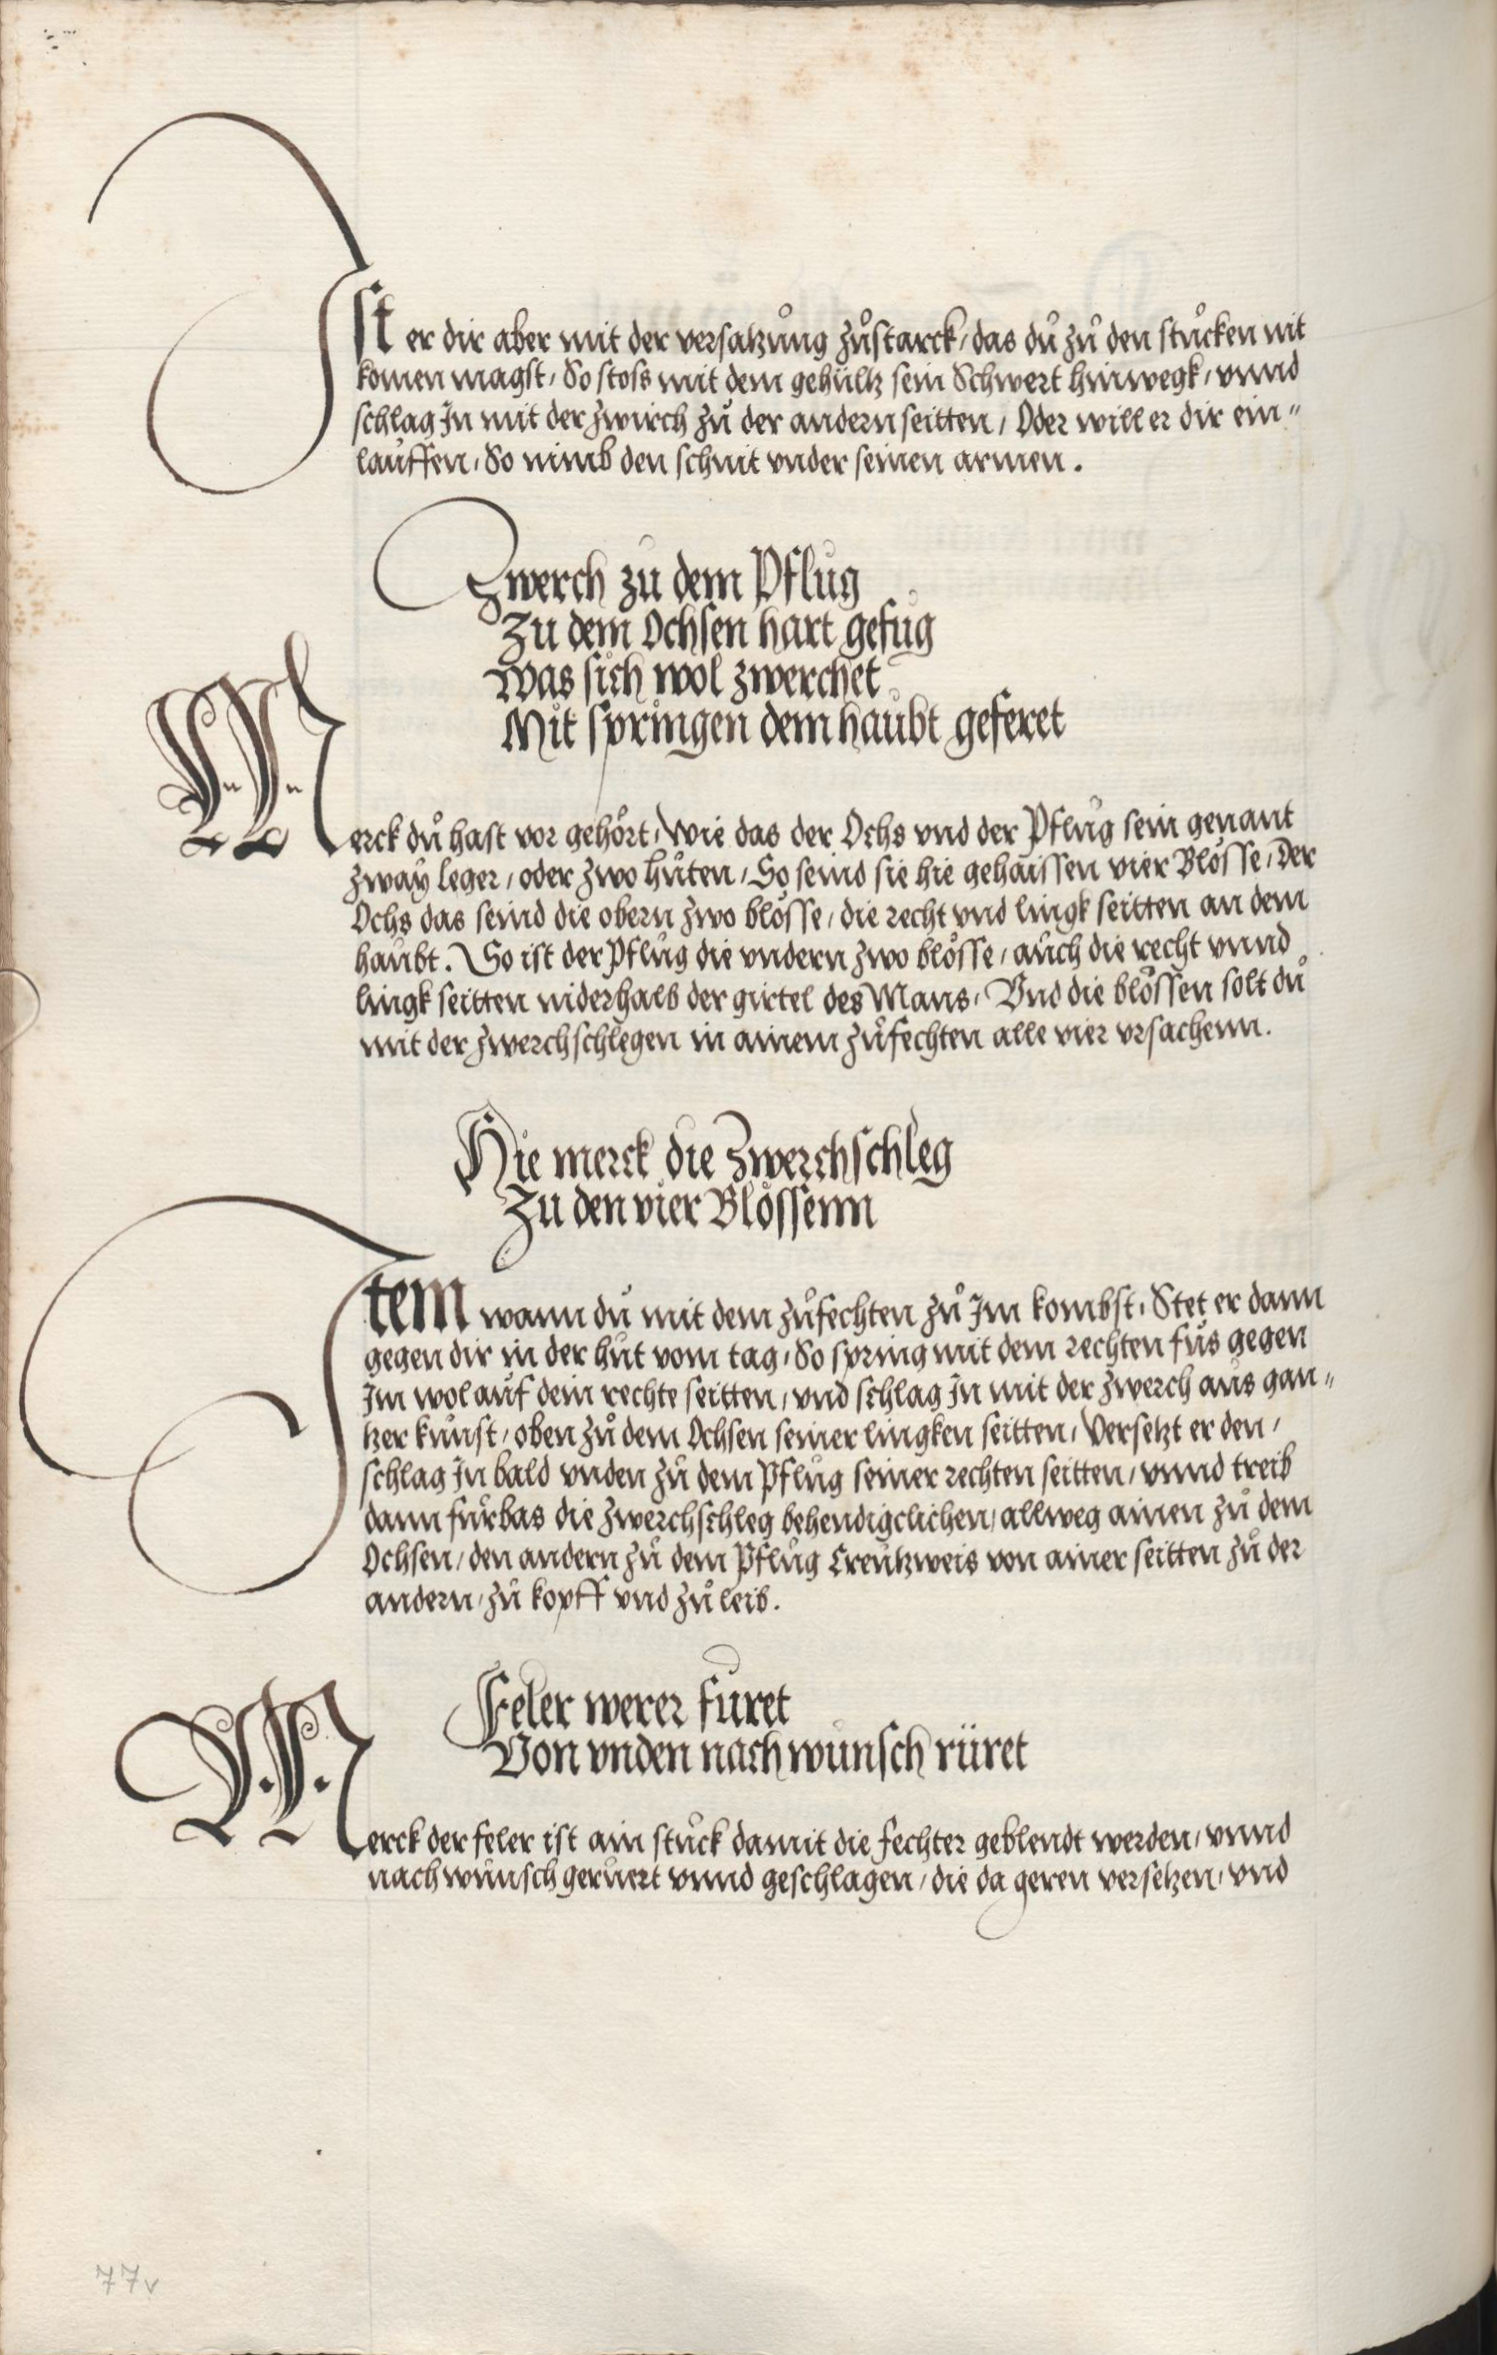 Ist er dir aber mit der versatzůng zůstarck, das dů zů den stůcken nit
komen magst, So stoss mit dem gehültz sein Schwert hinwegk, vnnd
schlag In mit der zwirch zů der andern seitten, Oder will er dir ein"
lauffen, So nimb den schnit vnder seinen armen.
Zwerch zu dem Pflug
Zu dem Ochsen hart gefug
Was sich wol zwerchet
Mit springen dem haubt geferet
Merck dů hast vor gehört, Wie das der Ochs vnd der Pflůg sein genant
zway leger, oder zwo hůten, So seind sie hie gehaissen vier Blösse, Der
Ochs das seind die obern zwo blösse, die recht vnd lingk seitten an dem
haubt. So ist der Pflůg die vndern zwo blösse, aůch die recht vnnd
lingk seitten niderhalb der girtel des Mans, Vnd die blössen solt dů
mit der zwerchschlegen in ainem zůfechten alle vier vrsachenn.
Hie merck die Zwerchschleg
Zu den vier Blössenn
Item wann dů mit dem zůfechten zů Im kombst, Stet er dann
gegen dir in der hůt vom tag, So spring mit dem rechten fůs gegen
Im wol aůf dein rechte seitten, vnd schlag In mit der zwerch aus gan"
tzer kůnst, oben zů dem Ochsen seiner lingken seitten, Versetzt er den,
schlag In bald vnden zů dem Pflůg seiner rechten seitten, vnnd treib
dann fůrbas die zwerchschleg behendigclichen, allweg ainen zů dem
Ochsen, den andern zů dem Pflůg Creůtzweis von ainer seitten zů der
andern, zů kopff vnd zů leib.
Feler werer furet
Von vnden nach wunsch rüret
Merck der feler ist ain stůck damit die fechter geblendt werden, vnnd
nach wůnsch gerůert vnnd geschlagen, die da geren versetzen, vnd
77v